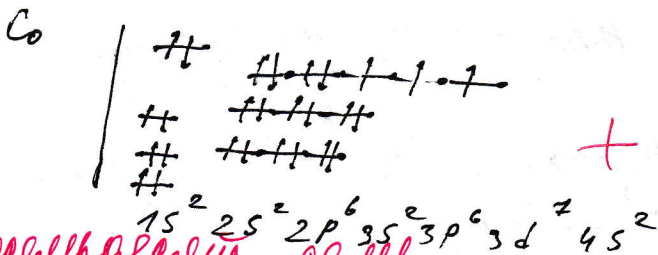 Co
1s² 2s² 2p⁶ 3s² 3p⁶ 3d⁷ 4s²